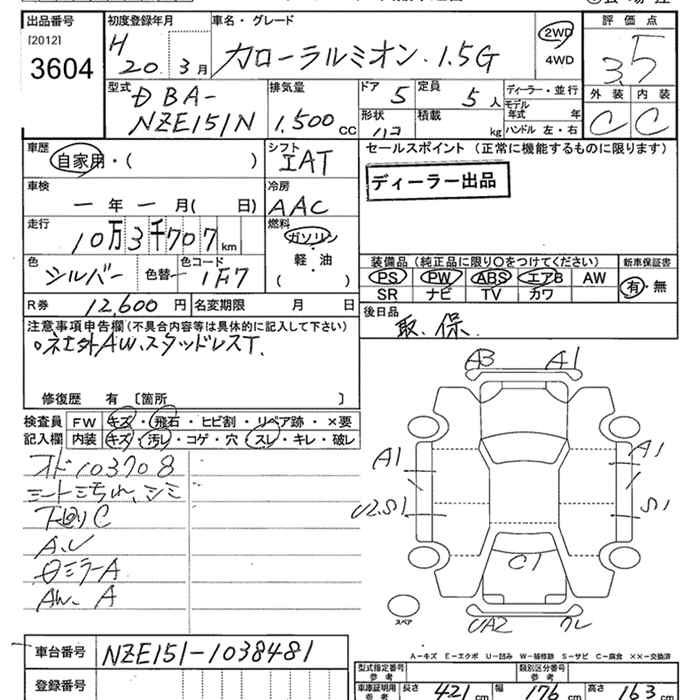 出品番号 初度登録年月 車名・グレード 評価点
[2012] H 20 年 3 月 カローラルミオン 1.5G 2WD 3.5
3604 4WD
型式 DBA- 排気量 ドア 5 定員 5 人 ディーラー・並行 外装 内装
NZE151N 1.500 CC 形状 ハコ 積載 kg モデル年式 年 C C
ハンドル 左・右
車歴 シフト セールスポイント (正常に機能するものに限ります)
自家用・( ) IAT
ディーラー出品
車検 冷房
一 年 一 月( 日) AAC
走行 燃料
10万3千707 km ガソリン
軽・油
( )
装備品 (純正品に限り〇をつけてください) 新車保証書
色 シルバー 色替 一 色コード 1F7
PS PW ABS エアB AW 有・無
SR ナビ TV カワ
R券 12,600 円 名変期限 月 日 後日品
取.保.
注意事項申告欄(不具合内容等は具体的に記入して下さい)
社外AW.スタッドレスT.
修復歴 有 〔箇所 〕
検査員 FW キズ・飛石・ヒビ割・リペア跡・×要
記入欄 内装 キズ・汚レ・コゲ・穴・スレ・キレ・破レ
オド103708
シートこちれ、シミ
下回りC
A.U
ミラーA
AW.A
A3 A1
A1 A1
U2.S1 S1
C1
スペア
UA2 ワレ
A-キズ E-エクボ U-凹み W-補修跡 S-サビ C-腐食 ××-交換済
車台番号 NZE151-1038481
登録番号
型式指定番号 参考 類別区分番号 参考
車庫証明用 参考 長さ 421 cm 幅 176 cm 高さ 163 cm